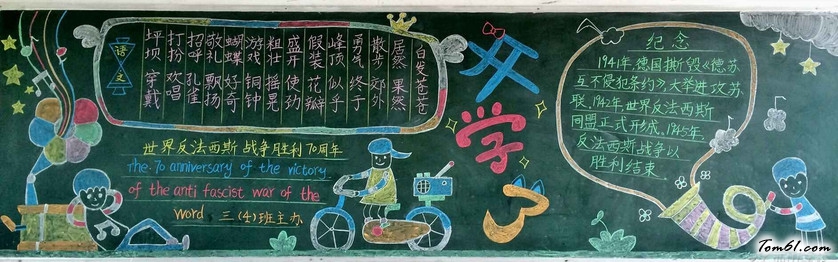 语文
坪坝 穿戴
打扮 欢唱
招呼 孔雀
敬礼 飘扬
蝴蝶 好奇
游戏 铜钟
粗壮 摇晃
盛开 使劲
假装 花瓣
峰顶 似乎
勇气 终于
散步 郊外
居然 果然
白发苍苍
世界反法西斯战争胜利70周年
The 70 anniversary of the victory
of the anti fascist war of the
word 三(4)班主办
开学了
纪念
1941年德国撕毁《德苏
互不侵犯条约》,大举进攻苏
联,1942年世界反法西斯
同盟正式形成,1945年
反法西斯战争以
胜利结束
Tom61.com